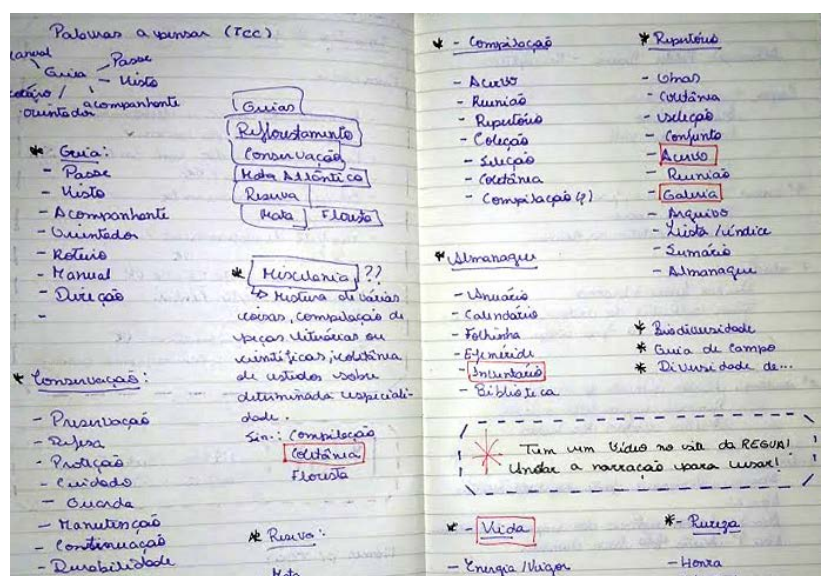 Palavras a pensar (TCC)
Manual
Passe
Guia
Visto
acompanhante
orientador
* Guia:
- Passe
- Visto
- Acompanhante
- Orientador
- Roteiro
- Manual
- Direção
-
* Conservação:
- Preservação
- Defesa
- Proteção
- Cuidado
- Guarda
- Manutenção
- Continuação
- Durabilidade
Guias
Reflorestamento
Conservação
Mata Atlântica
Reserva
Mata Floresta
* Miscelania ??
↳ Mistura de várias
coisas, compilação de
peças literárias ou
científicas, coletânea
de estudos sobre
determinada especiali-
dade.
Sin.: Compilação
Coletânea
Floresta
* Reserva:
Mata
* - Compilação
- Acervo
- Reunião
- Repertório
- Coleção
- Seleção
- Coletânea
- Compilação (?)
* Almanaque
- Anuário
- Calendário
- Folhinha
- Efeméride
- Inventário
- Biblioteca
* Repertório
- Obras
- Coletânea
- seleção
- Conjunto
- Acervo
- Reunião
- Galeria
- Arquivo
- Lista / índice
- Sumário
- Almanaque
* Biodiversidade
* Guia de Campo
* Diversidade de...
Tem um vídeo no site da REGUA!
a narração para usar!
* - Vida
- Energia / Vigor
* - Pureza
- Honra